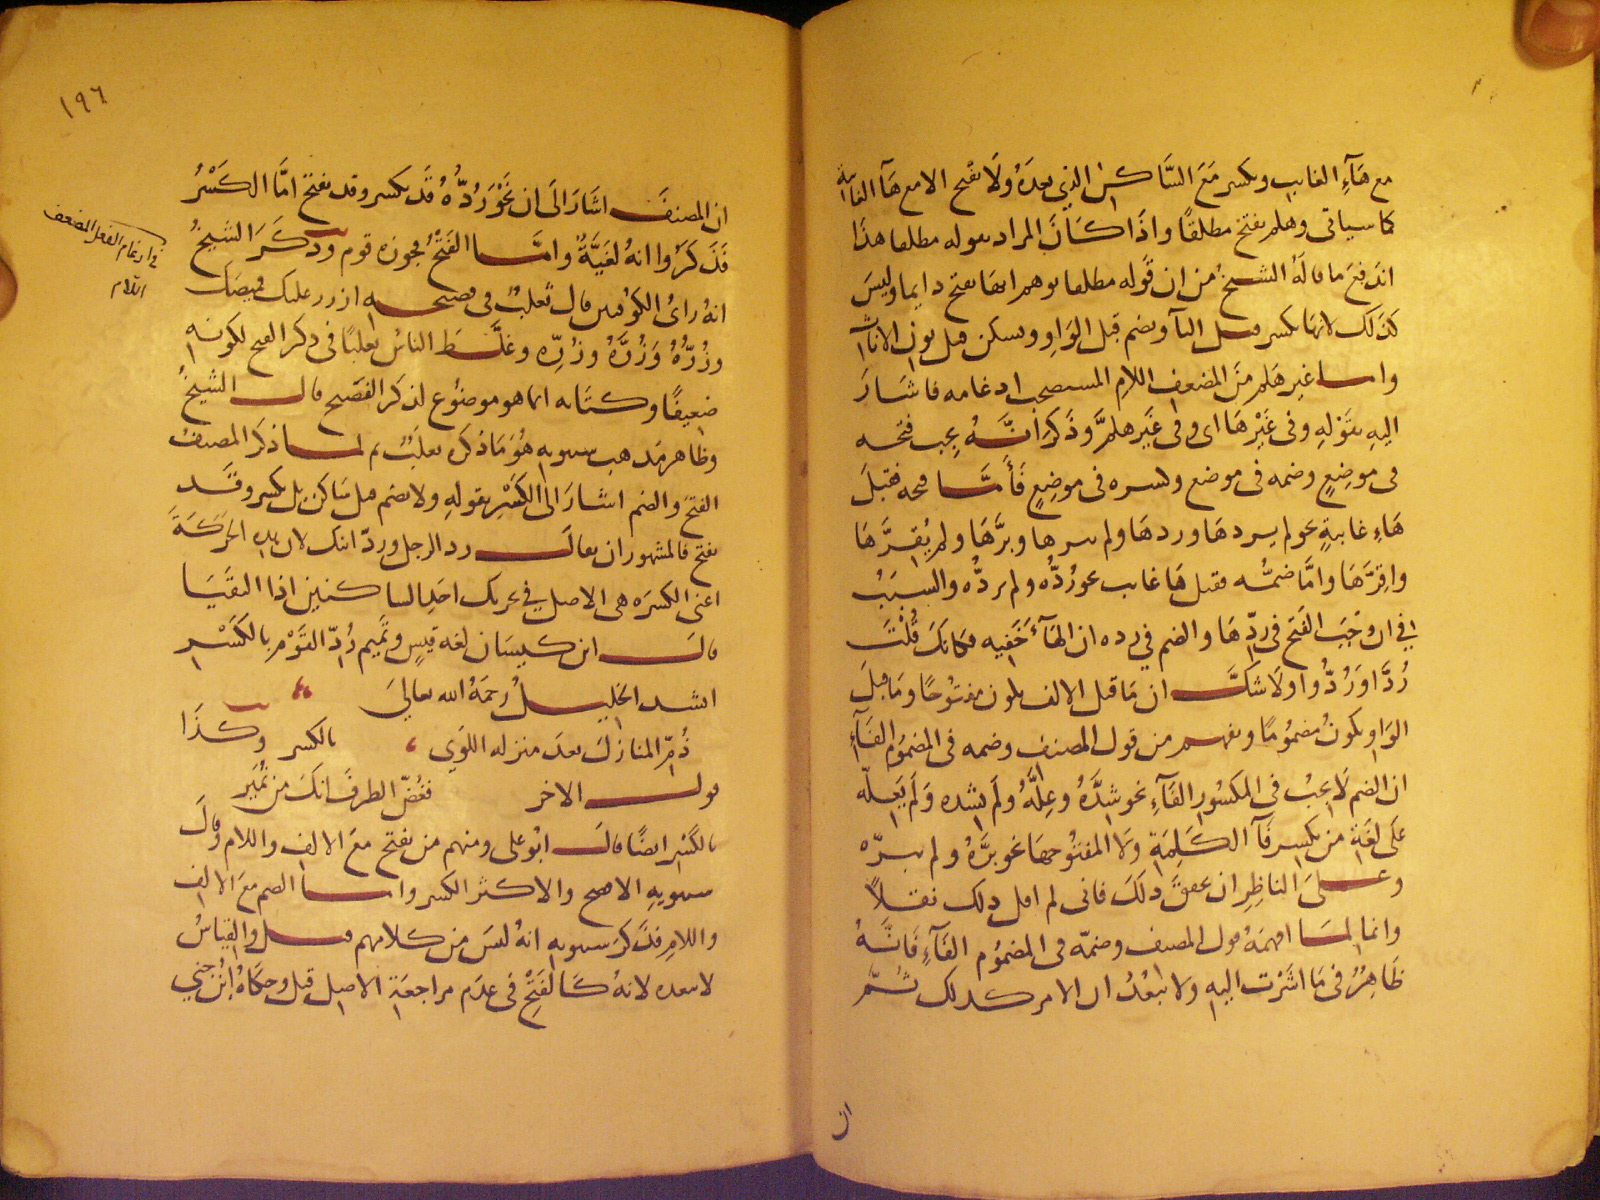 مع هَآءِ الغايب ويكسر مَعَ السَّاكن الذي بعدَهُ ولَا تفتح الا مع هَآ الغايبة
كما سياتي وهلم يفتح مطلقًا واذَا كَانَ المراد بقوله مطلقا هذَا
اندَفعَ ما قالَهُ الشيخُ من ان قوله مطلقا يوهم انها تفتح دايما وليسَ
كذَلك لانها تكسر قبل اليآ وتضم قبل الوَاوِ وتسكن قبل نون الاناث
واما غير هَلم منَ المضعف اللامِ المستصحب ادغامه فاشَارَ
اليهِ بقَوْلهِ وفى غَيْرهَا اى وفى غَير هلمَّ وذَكرَ انَّهُ يجب فتحه
فى موضعٍ وضمه فى موضع وكسره فى موضِعٍ فَأمَّا فتحه فقبلَ
هَاءِ غايبةٍ نحو لم يردهَا وردهَا ولم يبرها وبرَّهَا ولم يُقِرَّهَا
واقِرَّهَا وامَّا ضمُّه فقبل هَا غايب نحو رُدُّه ولم يردُّه والسبَبُ
فى ان وجَبَ الفتح فى ردّهَا والضم في رده ان الهَآءَ خَفيه فكانكَ قُلْتَ
رُدَّا اوَ رُدُّوا ولَا شكَّ ان مَا قبل الالف يكون مفتُوحًا ومَا قبلَ
الوَاو يكونُ مضمُومًا ويفهم من قول المصنف وضمه فى المضمُوم الفَآءِ
ان الضم لَا يجبُ فى المكسُور الفَآءِ نحو شِدَّهُ وعِلَّهُ ولَم يشده وَلَم يَعِلّه
علَى لغَةِ من يكسر فَآ الكَلمَةِ وَلَا المفتُوحهَا نحو بَرَّهُ ولم يبرّه
وعلَى النَاظِر ان يحققَ ذلَكَ فانى لم ار فى ذلك نقلًا
وانما لمَا افهمهُ قول المصنف وضمّه فى المضمُوم الفَآءِ فَانَّهُ
ظَاهِرٌ فى مَا اشَرْت اليهِ ولا يبعُدُ ان الامر كذلك ثمَّ
ان
١٩٦
ان المصنفَ اشَارَ الَى ان نَحْوَ رُدُّهُ قَد يكسر وقد يفتح امَّا الكَسْرُ
فَذكرُوا انهُ لُغَيَّةٌ وامَّا الفَتْحُ فجوزه قوم وذكَرَ الشيخُ
انهُ راىُ الكوُفيين قال ثَعلبٌ فى فصيحه ازرر عليك قميصَك
وزُرُّهُ وَزُرَّهُ وزُرِّه وغلَّط الناسُ ثعلبًا فى ذكر الفتح لكونه
ضعيفًا وكتابه انما هو موضوُع لذكر الفصَيح قال الشيخُ
وظاهر مذهب سيبويه هُوَ مَا ذكره ثعلَبٌ ثم لما ذكرَ المصنفُ
الفتحَ والضم اشارَ الَى الكَسْرِ بقولهِ ولا يضم قبل سَاكن بل يكسر وقَد
يفتح فالمشهور ان يقال رد الرجل وردّ ابنك لان هذهِ الحَركَةَ
اعنى الكسرَه هى الاصل في تحريك احد الساكنين اذا التقَيَا
قالَ ابن كيسَان لغه قيسٍ وتَميم رُدِّ القَوْمَ بالكَسْرِ
انشد الخليلُ رحمَهُ الله تعالىَ
ذُمِّ المنَازلَ بعدَ منزله اللوَي بالكسر وكذَا
قول الاخر فغُضّ الطرفَ انكَ من نُمَير
بالكَسْر ايضًا قالَ ابُو على ومنهم من يفتح معَ الالف واللام وقَالَ
سيبويهِ الافصح والاكثر الكسر واما الضم معَ الالف
واللامِ فذَكرَ سيبويه انهُ ليسَ من كلامهم قيل والقياسُ
لا يبعده لانهُ كَالفَتحِ فى عدَم مراجعَةِ الاصل قبل وحكاهُ ابْن جني
في ادغام الفعل المضعف
اللام